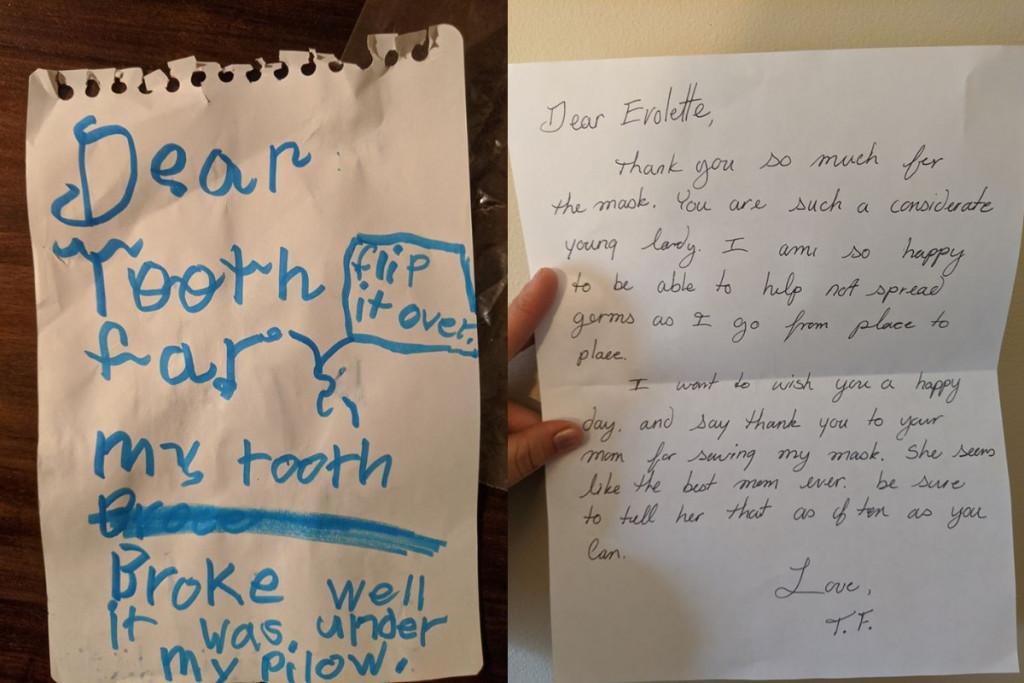 Dear
Tooth
flip
it over.
fary
my tooth
Broke well
it was under
my pilow.
Dear Evolette,
Thank you so much for
the mask. You are such a considerate
young lady. I am so happy
to be able to help not spread
germs as I go from place to
place.
I want to wish you a happy
day, and say thank you to your
mom for sewing my mask. She seems
like the best mom ever. be sure
to tell her that as often as you
can.
Love,
T.F.